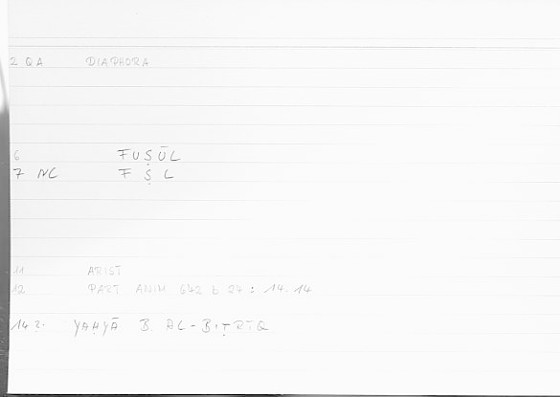 2 QA DIAPHORA
6 FUṢŪL
7 NC F Ṣ L
11 ARIST
12 PART ANIM 642 b 27 : 14.14
14 2. YAḤYĀ B. AL-BIṬRĪQ